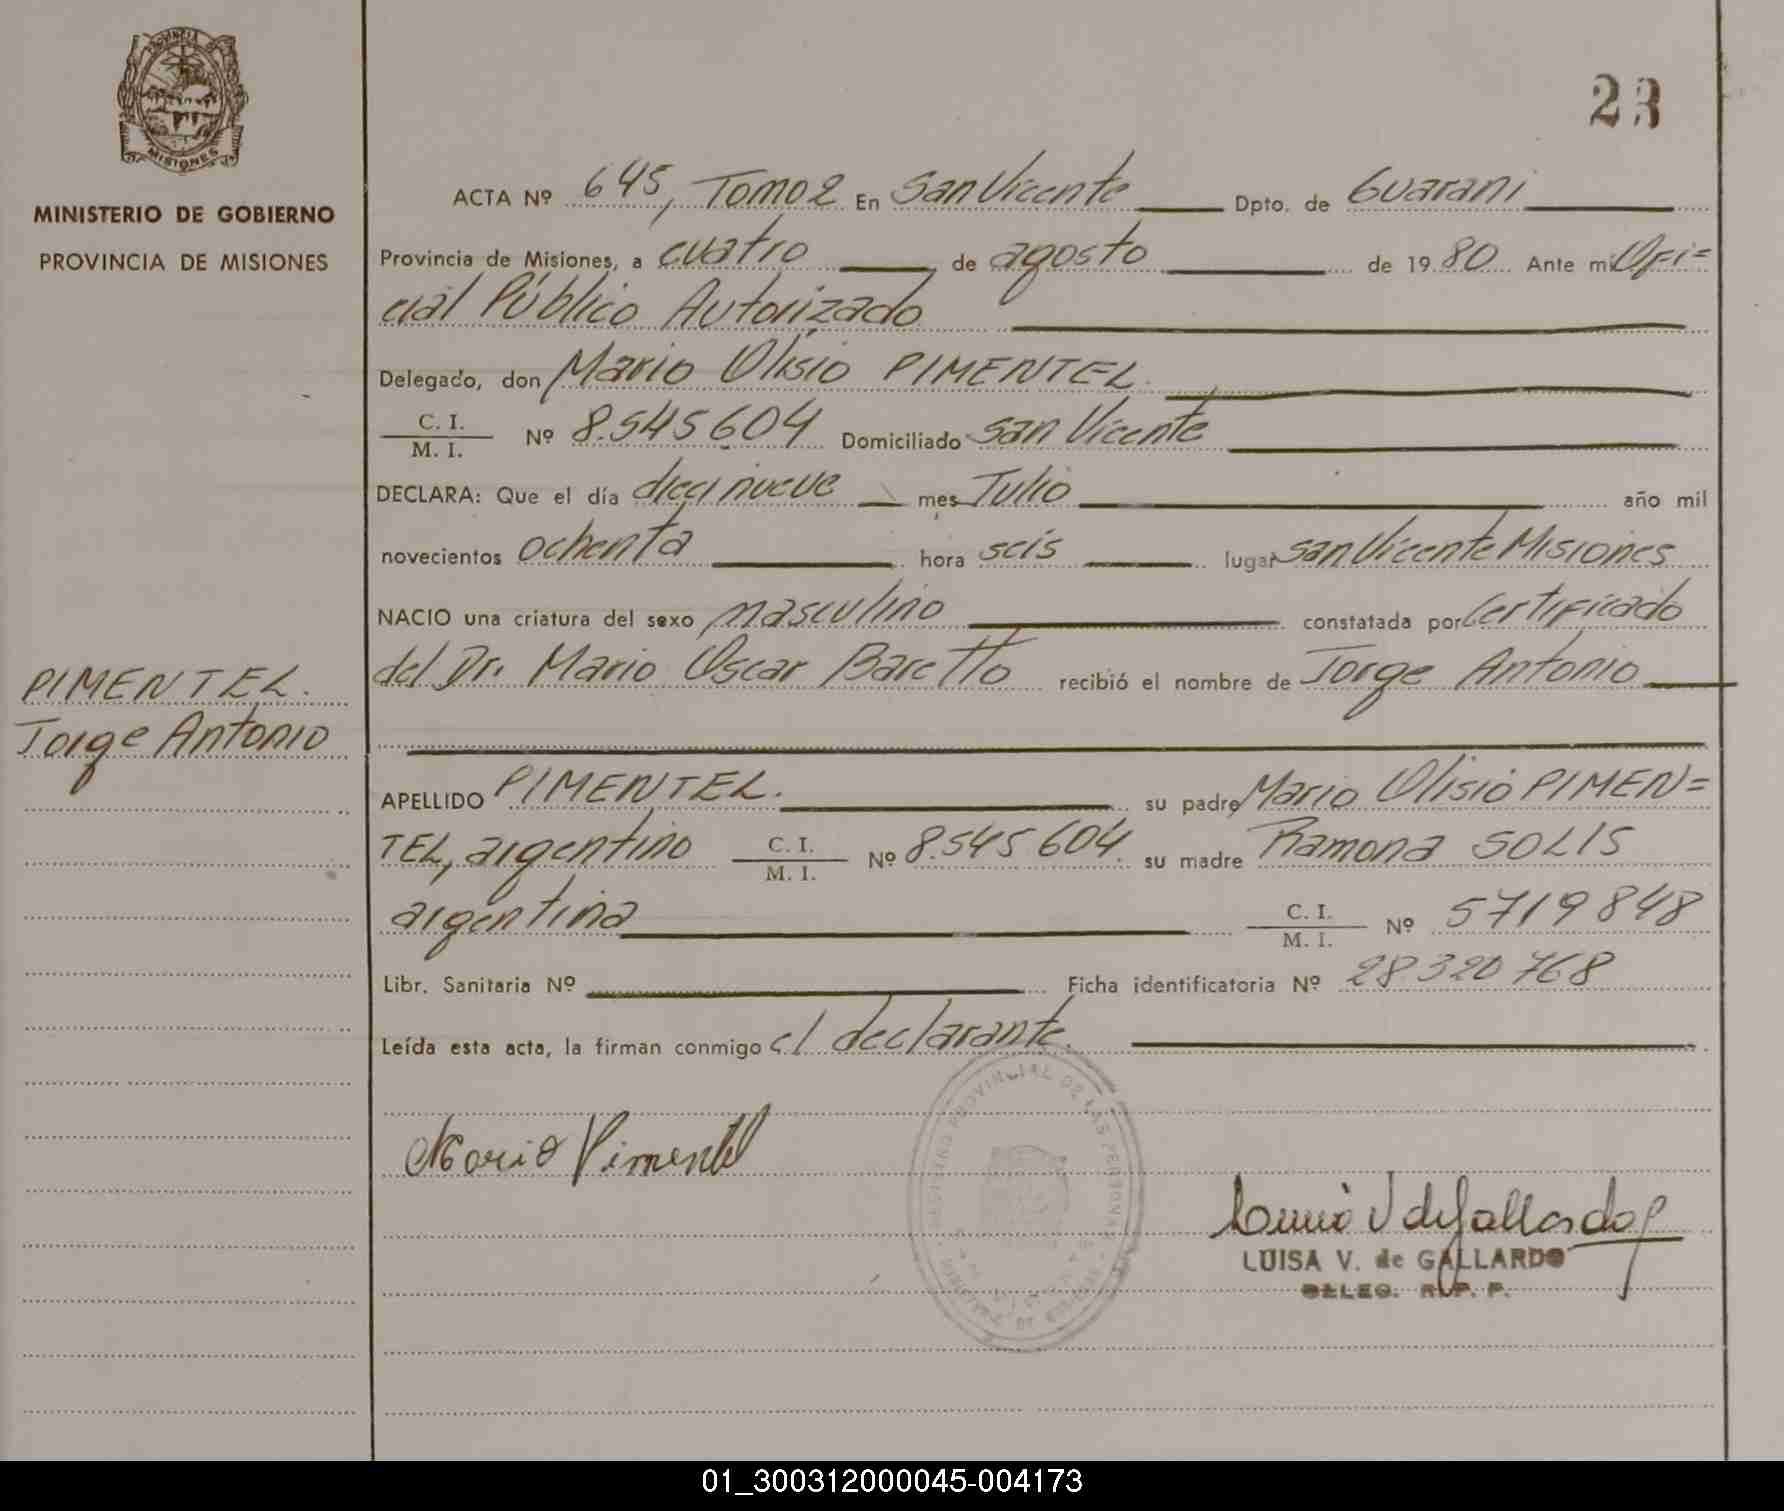 PROVINCIA DE
MISIONES
MINISTERIO DE GOBIERNO
PROVINCIA DE MISIONES
PIMENTEL.
Jorge Antonio
23
ACTA Nº 645, Tomo 2 En San Vicente Dpto. de Guarani
Provincia de Misiones, a cuatro de agosto de 1980 Ante mi Ofi=
cial Público Autorizado
Delegado, don Mario Olisio PIMENTEL.
C. I.
M. I. Nº 8.545604 Domiciliado San Vicente
DECLARA: Que el día dieci nueve mes Julio año mil
novecientos ochenta hora seis lugar San Vicente Misiones
NACIO una criatura del sexo masculino constatada por Certificado
del Dr. Mario Oscar Baretto recibió el nombre de Jorge Antonio
APELLIDO PIMENTEL. su padre Mario Olisio PIMEN=
TEL, argentino C. I.
M. I. Nº 8.545604. su madre Ramona SOLIS
argentina C. I.
M. I. Nº 5719848
Libr. Sanitaria Nº Ficha identificatoria Nº 28.320768
Leída esta acta, la firman conmigo el declarante.
Mario Pimentel
REGISTRO PROVINCIAL DE LAS PERSONAS
LUISA V. de GALLARDO
DELEG. R. P. P.
01_300312000045-004173